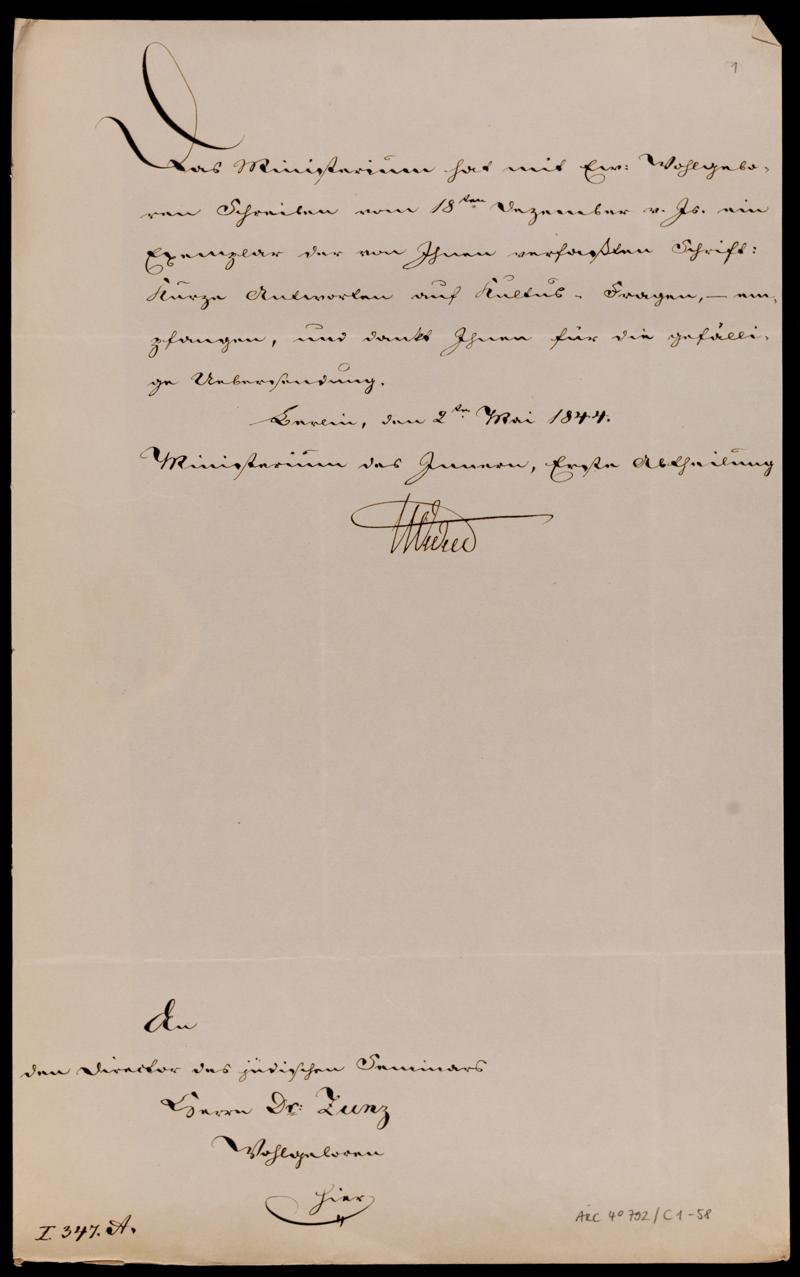 1
Das Ministerium hat mit Ew: Wohlgebo-
ren Schreiben vom 18ten Dezember v. Js. ein
Exemplar der von Ihnen verfaßten Schrift:
Kurze Antworten auf Kultus-Fragen, — em-
pfangen, und dankt Ihnen für die gefälli-
ge Uebersendung.
Berlin, den 2ten Mai 1844.
Ministerium des Innern, Erste Abtheilung
An
den Director des jüdischen Seminars
Herrn Dr: Zunz
Wohlgeboren
hier
I. 347. A.
ARC 4° 792/C1-58